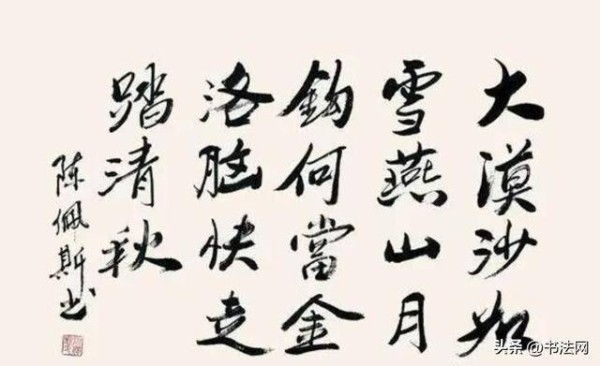 大漠沙如
雪燕山月
鈎何當金
洛脑快走
踏清秋
陈佩斯书
头条 @书法网